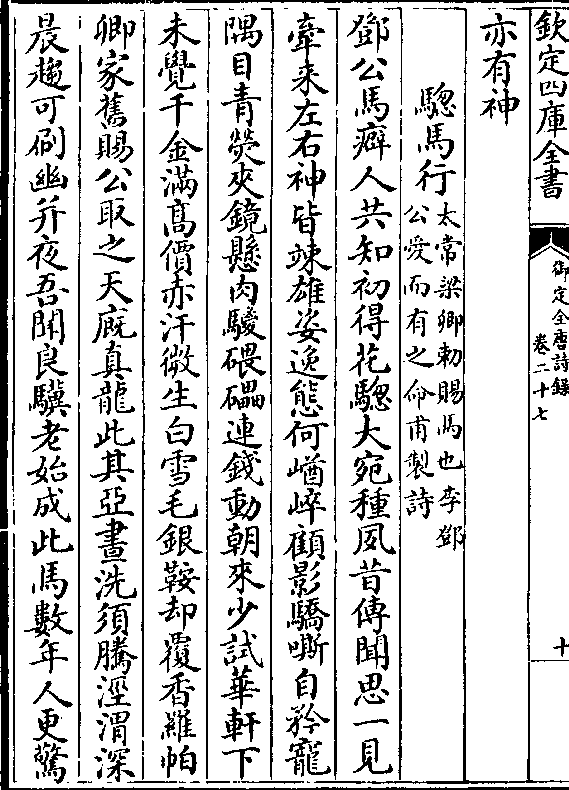 欽定四庫全書
御定全唐詩錄
卷二十七
十
亦有神
驄馬行
太常梁卿勅賜馬也李鄧
公愛而有之命甫製詩
鄧公馬癖人共知初得花驄大宛種夙昔傳聞思一見
牽来左右神皆竦雄姿逸態何崷崒顧影驕嘶自矜寵
隅目青熒夾鏡懸肉騣碨礧連錢動朝來少試華軒下
未覺千金滿髙價赤汗微生白雪毛銀鞍却覆香羅帕
卿家舊賜公取之天廐真龍此其亞晝洗須騰涇渭深
晨趨可刷幽并夜吾聞良驥老始成此馬數年人更驚